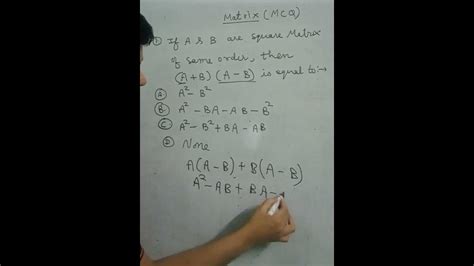 Matrix (MCQ)
① If A & B are square Matrix
of same order, then
(A + B) (A - B) is equal to :-
Ⓐ A² - B²
Ⓑ A² - BA - AB - B²
Ⓒ A² - B² + BA - AB
Ⓓ None
A(A - B) + B(A - B)
A² - AB + BA -